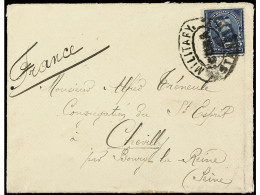 MILITARY
France
Monsieur Alfred
Congregation du St Esprit
à Chevilly
par Bourg la Reine
(Seine)